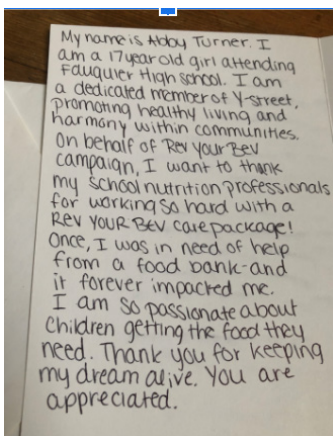 My name is Abby Turner. I
am a 17 year old girl attending
Fauquier High school. I am
a dedicated member of Y-street,
promoting healthy living and
harmony within communities.
On behalf of Rev Your Bev
campaign, I want to thank
my school nutrition professionals
for working so hard with a
Rev YOUR BEV care package!
Once, I was in need of help
from a food bank-and
it forever impacted me.
I am so passionate about
children getting the food they
need. Thank you for keeping
my dream alive. You are
appreciated.